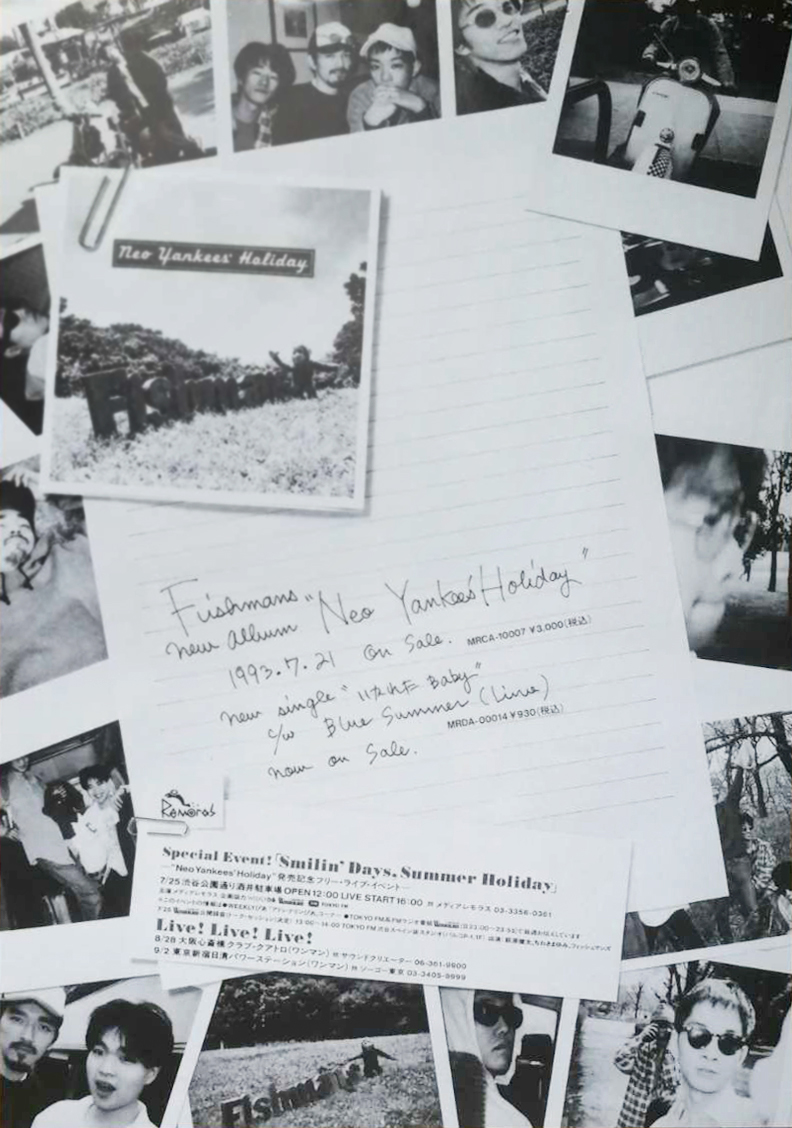 Neo Yankees' Holiday
Fishmans
Fishmans "Neo Yankees' Holiday"
new album
1993.7.21 on Sale. MRCA-10007 ¥3,000(税込)
new single "いかれた Baby"
c/w Blue Summer (Live)
MRDA-00014 ¥930(税込)
now on Sale.
Remoras
Special Event!「Smilin' Days, Summer Holiday」
—"Neo Yankees' Holiday"発売記念フリー・ライブ・イベント—
7/25 渋谷公園通り酒井駐車場 OPEN12:00 LIVE START16:00 問 メディアレモラス 03-3356-0361
Live! Live! Live!
8/28 大阪心斎橋クラブ・クアトロ(ワンマン) 問 サウンドクリエーター 06-361-9900
9/2 東京新宿日清パワーステーション(ワンマン) 問 ソーゴー東京 03-3405-9999
Fishmans